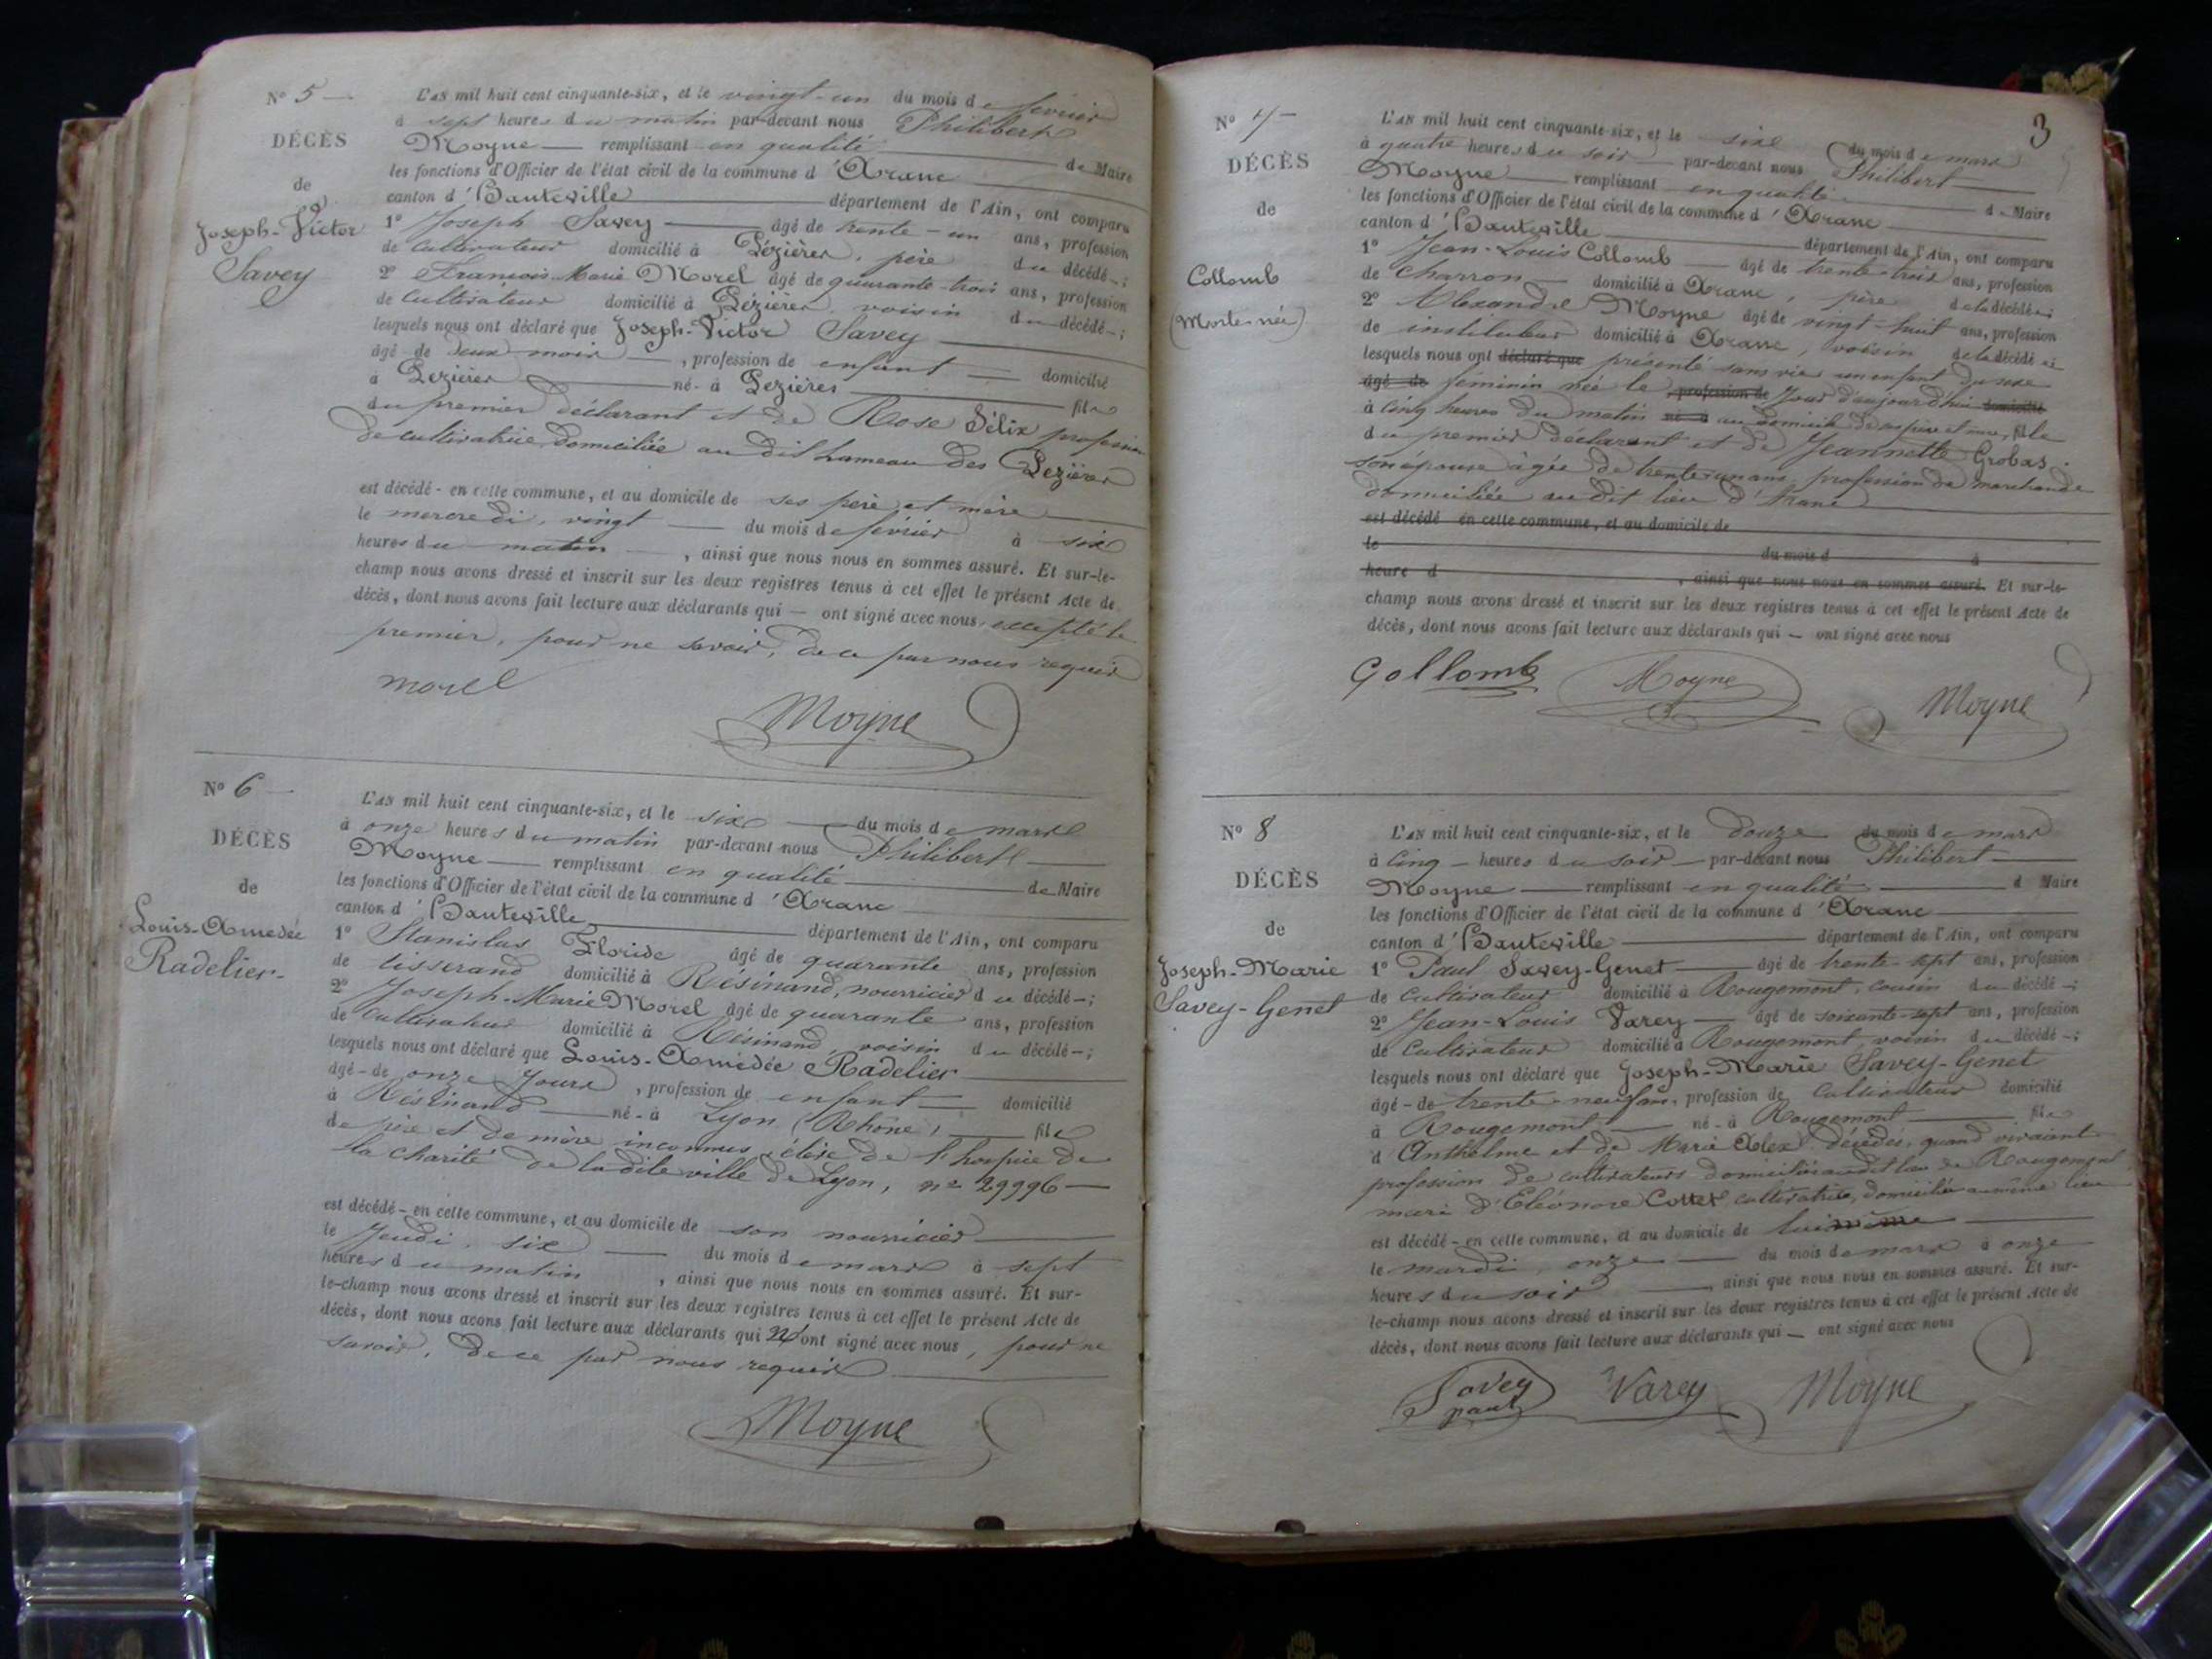 N° 5 —
DÉCÈS
de
Joseph-Victor
Savey
L'AN mil huit cent cinquante-six, et le vingt-un du mois de février
à sept heures du matin par-devant nous Philibert
Moyne — remplissant en qualité de Maire
les fonctions d'Officier de l'état civil de la commune d'Aranc
canton d'Hauteville département de l'Ain, ont comparu
1° Joseph Savey — âgé de trente-un ans, profession
de cultivateur domicilié à Pézières, père du décédé - ;
2° François-Marie Morel âgé de quarante-trois ans, profession
de cultivateur domicilié à Pézières, voisin du décédé - ;
lesquels nous ont déclaré que Joseph-Victor Savey
âgé - de deux mois —, profession de enfant — domicilié
à Pezières né - à Pezières fils
du premier déclarant et de Rose Félix profession
de cultivatrice, domiciliée au dit hameau des Pezières
est décédé - en cette commune, et au domicile de ses père et mère
le mercredi, vingt — du mois de février à six
heures du matin —, ainsi que nous nous en sommes assuré. Et sur-le-
champ nous avons dressé et inscrit sur les deux registres tenus à cet effet le présent Acte de
décès, dont nous avons fait lecture aux déclarants qui — ont signé avec nous, excepté le
premier, pour ne savoir, de ce par nous requis
morel
Moyne
N° 6 —
DÉCÈS
de
Louis-Amédée
Radelier.
L'AN mil huit cent cinquante-six, et le six — du mois de mars
à onze heures du matin par-devant nous Philibert —
Moyne — remplissant en qualité de Maire
les fonctions d'Officier de l'état civil de la commune d'Aranc
canton d'Hauteville département de l'Ain, ont comparu
1° Stanislas Floride âgé de quarante ans, profession
de tisserand domicilié à Résinand, nourricier du décédé - ;
2° Joseph-Marie Morel âgé de quarante ans, profession
de cultivateur domicilié à Résinand, voisin du décédé - ;
lesquels nous ont déclaré que Louis-Amédée Radelier
âgé - de onze jours, profession de enfant — domicilié
à Résinand — né - à Lyon (Rhône) — fils
de père et de mère inconnus, élève de l'hospice de
la charité de la dite ville de Lyon, n° 29996 —
est décédé - en cette commune, et au domicile de son nourricier
le Jeudi, six — du mois de mars à sept
heures du matin, ainsi que nous nous en sommes assuré. Et sur-
le-champ nous avons dressé et inscrit sur les deux registres tenus à cet effet le présent Acte de
décès, dont nous avons fait lecture aux déclarants qui n'ont signé avec nous, pour ne
savoir, de ce par nous requis
Moyne
3
N° 7 —
DÉCÈS
de
Collomb
(Morte-née)
L'AN mil huit cent cinquante-six, et le six du mois de mars
à quatre heures du soir — par-devant nous Philibert —
Moyne — remplissant en qualité de Maire
les fonctions d'Officier de l'état civil de la commune d'Aranc
canton d'Hauteville département de l'Ain, ont comparu
1° Jean-Louis Collomb — âgé de trente-trois ans, profession
de charron — domicilié à Aranc, père de la décédée ;
2° Alexandre Moyne âgé de vingt-huit ans, profession
de instituteur domicilié à Aranc, voisin de la décédée ;
lesquels nous ont déclaré que présenté sans vie un enfant du sexe
âgé de féminin née le profession de Jour d'aujourd'hui domicilié
à cinq heures du matin né à au domicile de ses père et mère, fille
du premier déclarant et de Jeannette Grobas.
son épouse âgée de trente-un ans, profession de marchande
domiciliée au dit lieu d'Aranc
est décédé en cette commune, et au domicile de
le du mois d à
heure d , ainsi que nous nous en sommes assuré. Et sur-le-
champ nous avons dressé et inscrit sur les deux registres tenus à cet effet le présent Acte de
décès, dont nous avons fait lecture aux déclarants qui — ont signé avec nous
Collomb Moyne Moyne
N° 8
DÉCÈS
de
Joseph-Marie
Savey-Genet
L'AN mil huit cent cinquante-six, et le douze du mois de mars
à cinq — heures du soir — par-devant nous Philibert —
Moyne — remplissant en qualité d Maire
les fonctions d'Officier de l'état civil de la commune d'Aranc
canton d'Hauteville département de l'Ain, ont comparu
1° Paul Savey-Genet — âgé de trente-sept ans, profession
de cultivateur domicilié à Rougemont, cousin du décédé - ;
2° Jean-Louis Varey — âgé de soixante-sept ans, profession
de cultivateur domicilié à Rougemont, voisin du décédé - ;
lesquels nous ont déclaré que Joseph-Marie Savey-Genet
âgé - de trente-neuf ans, profession de cultivateur domicilié
à Rougemont — né - à Rougemont — fils
d'Anthelme et de Marie Alex décédés, quand vivaient
profession de cultivateurs domiciliés audit lieu de Rougemont,
mari d'Eléonore Cottet cultivatrice, domiciliée au même lieu
est décédé - en cette commune, et au domicile de lui même
le mardi, onze — du mois de mars à onze
heures du soir —, ainsi que nous nous en sommes assuré. Et sur-
le-champ nous avons dressé et inscrit sur les deux registres tenus à cet effet le présent Acte de
décès, dont nous avons fait lecture aux déclarants qui — ont signé avec nous
Savey paul Varey Moyne